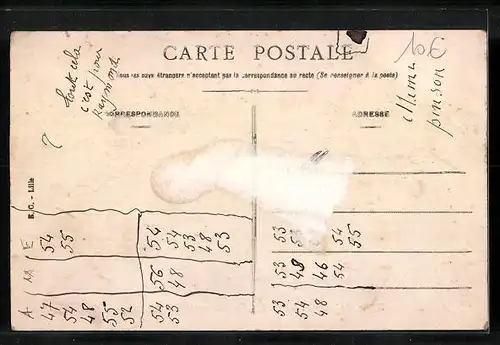 CARTE POSTALE
Tous les pays étrangers n'acceptent pas la correspondance au recto (Se renseigner à la poste)
CORRESPONDANCE
ADRESSE
E. C. - Lille
tout cela
c'est pour
raymond
10 E
pinson
E
54
55
54
54
53
48
53
53
54
55
56
48
53
48
46
54
A
47
54
48
55
52
54
53
53
54
48